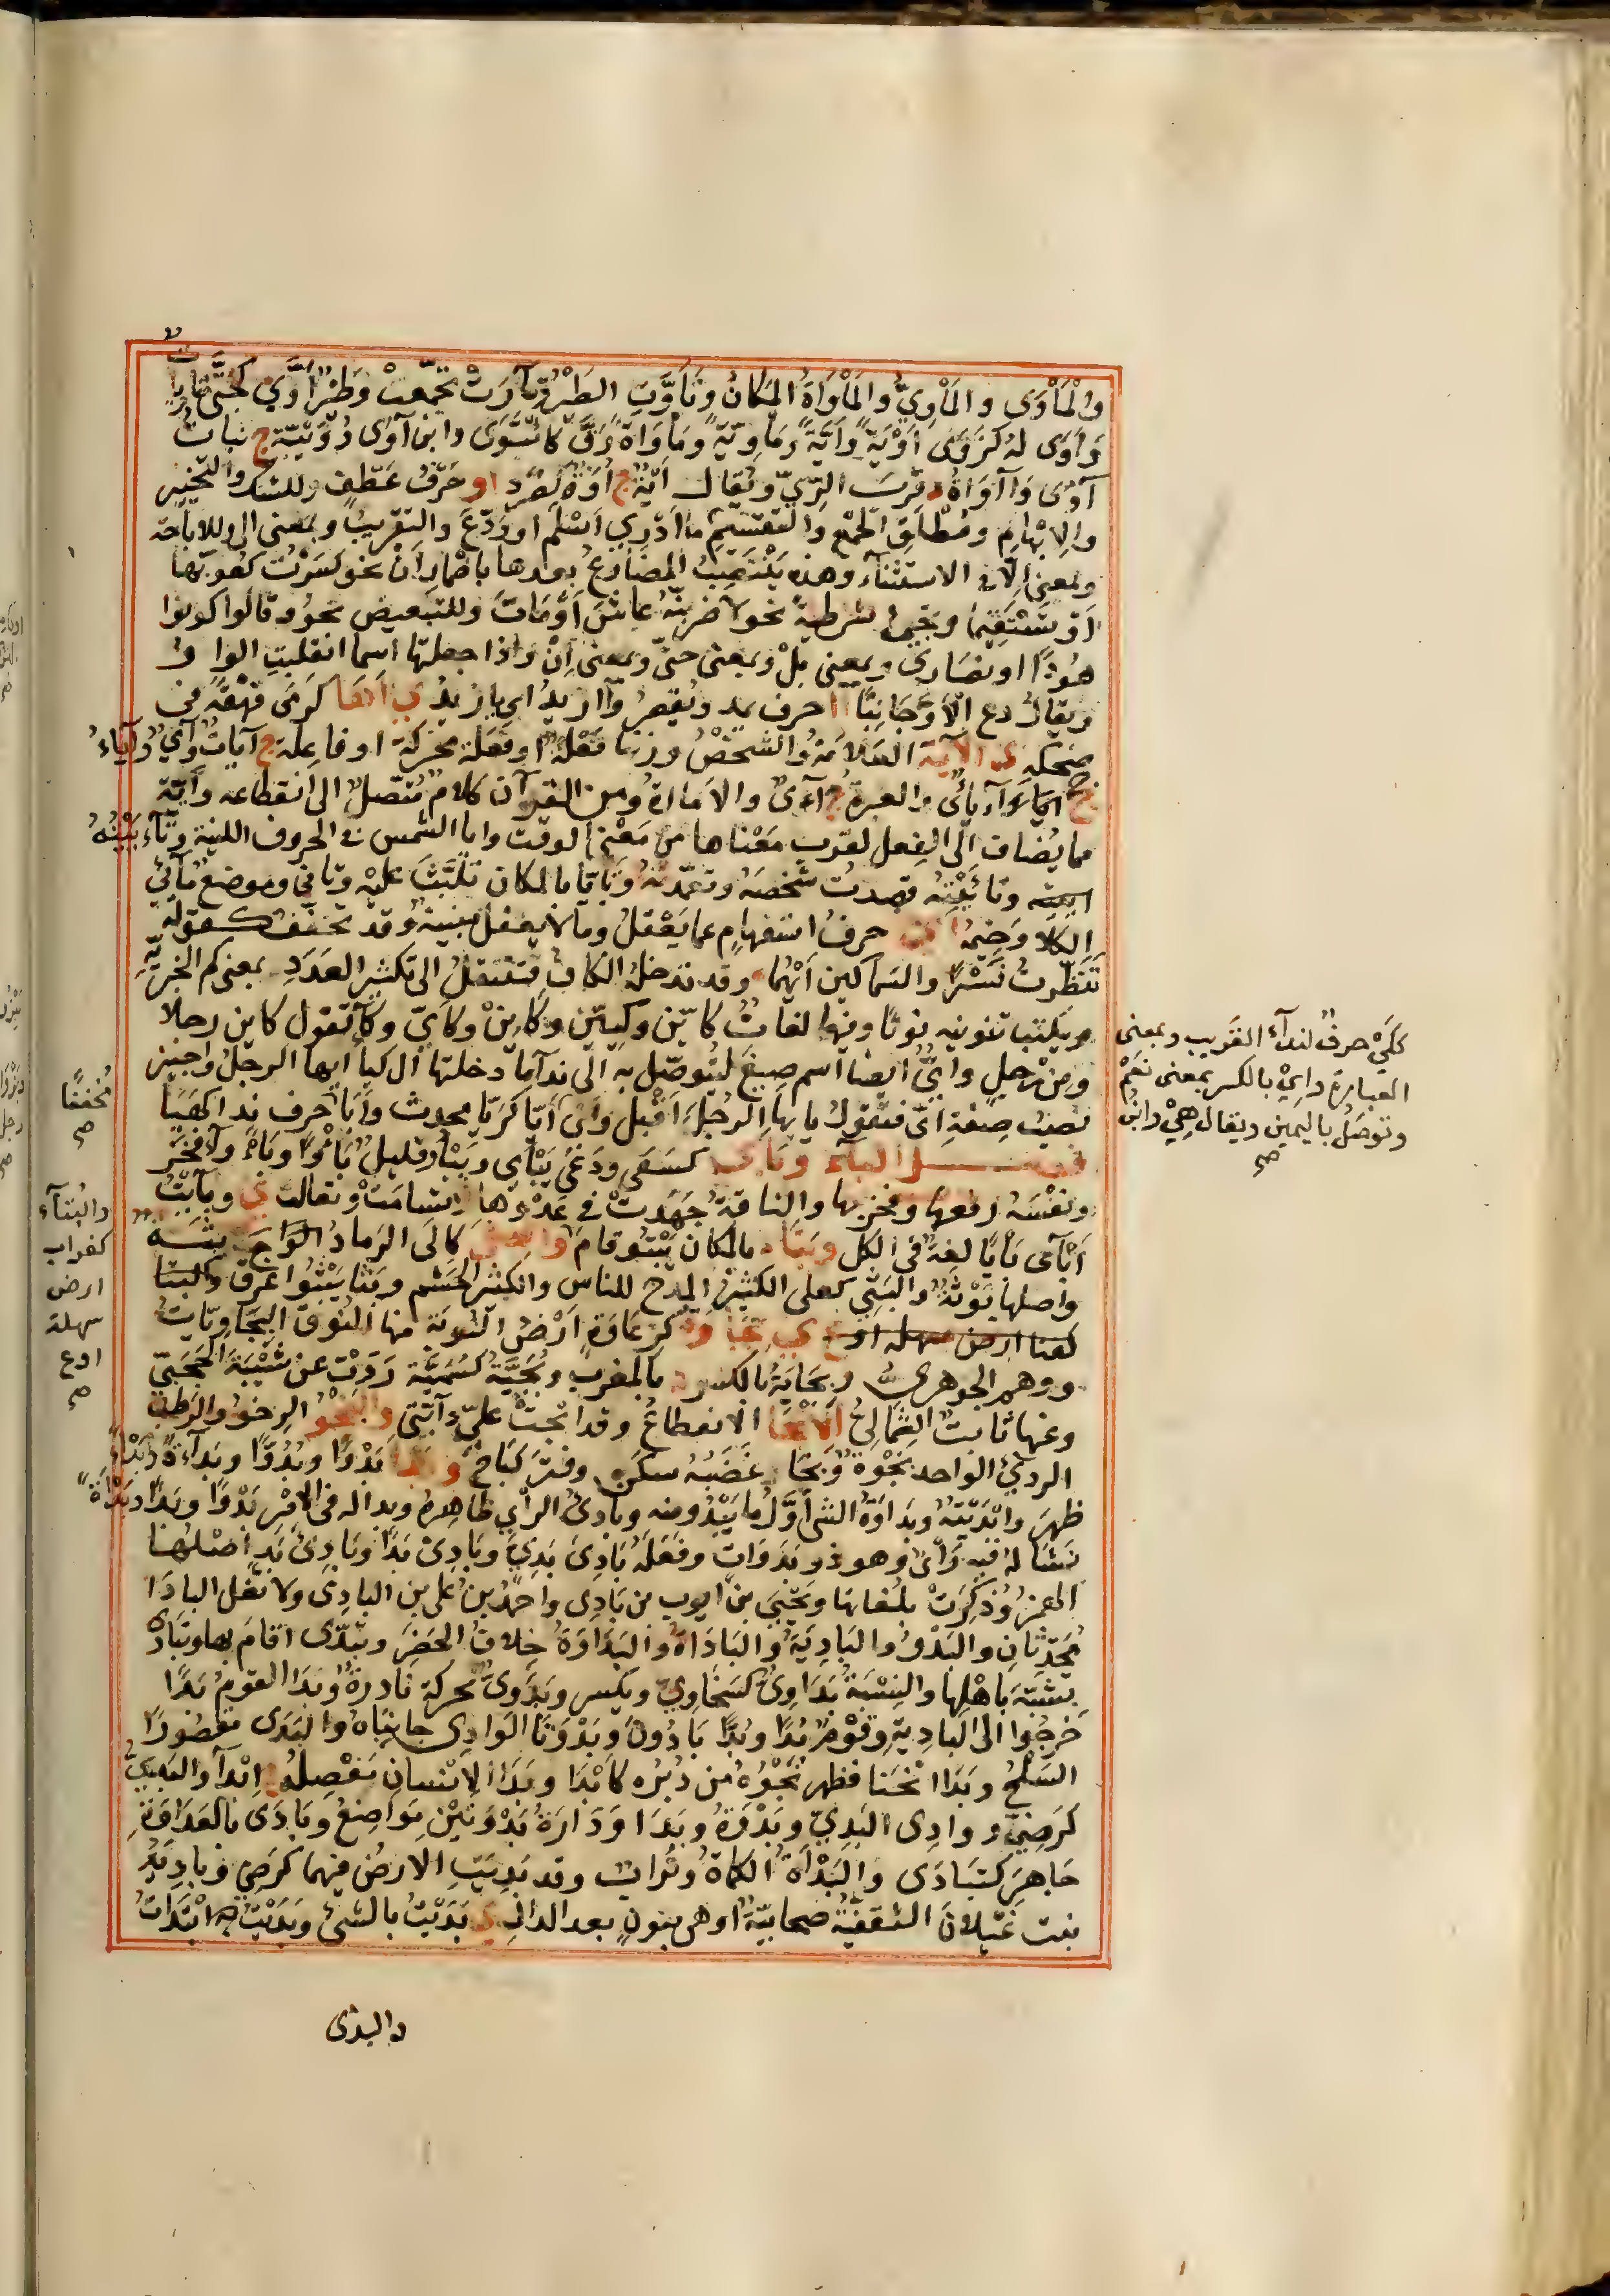 والْمَأْوَى والمَأْوِيُ والمَأْوَاةُ المَكانُ وتَأَوَّتِ الطَّيْرُ وتآوَتْ تَجَمَّعَتْ وَطَيْرٌ أُوِّيٌ كَجُثِّيٍ مُتَأَوِّياتٌ
وَأَوَى لهُ كَرَوَى أَوْيَةً وأَيَّةً ومَأْوِيَةً ومَأْوَاةً رَقَّ كَائْتَوَى وابن آوَى دُوَيْبَّة ج بناتُ
آوَى وَآوَاةُ د قُرْبَ الرَّيِّ ويُقال آبَةُ ج أَوَ حَرْفُ عَطْفٍ وللشك والتَخْيِيرِ
والإِبْهامِ ومُطْلَقِ الجَمْعِ والتقسيم ما أَدْرِي أَسَلَّمَ او وَدَّعَ والتقريب وبمعنى الى وللاباحة
وبمعنى إلّا في الاستثناء وهذه يَنْتَصِبُ المضارعُ بعدها باضمار أَنْ نحو كَسَرْتُ كُعُوبَها
أَوْ تَسْتَقِيما ويَجِئُ شرطيةً نحو لأضربنّهُ عاشَ أَوْ مَاتَ وللتبعيض نحو وقالوا كونوا
هُودًا او نصارى وبمعنى بلْ وبمعنى حتى وبمعنى إِنْ واذا جعلتها اسما انقلبت الواو
ويقال دع الأَوَّ جانِبًا آ حرف يمد ويُقصرُ وآ ازيدُ اي يا زيدُ ي أَهَا كَرَمَى قَهْقَهَ في
ضحكه ي الآيَة العَلامَةُ والشخْصُ وزنها فَعْلَة او فَعَلَة محركة او فاعِلة ج آيات وآيٌ وآياءٌ
جج آياءٌ والعبرةُ ج آيٌ والأمارة ومن القرآن كلام مُتَّصل الى انقطاعه وآيَة
مما يُضاف الى الفعل لقرب معناها من مَعْنى الوقت وإيا الشمس في الحروف اللينة وتآءيَيْتُهُ
وتأيَّيْتُهُ قصدتُ شخصَهُ وتعمّدتُهُ وتَأَيَّا بالمكان تَلَبَّثَ عليه وتأنى وموضعٌ مَأيُ
الكلا وَخيمُ اي حرفُ استفهامٍ عما يَعْقلُ وما لا يعقل مبنية وقد تخفف كقوله
تَنَظَّرْتُ نَسْرًا والسماكين أَيْهُمَا وقد تدخلهُ الكاف فتنتقلُ الى تكثير العَدَدِ بمعنى كم الخبريّةِ
ويكتب تنوينه نونًا وفيها لغات كايِّن وكَيِيِّن وكاءِينْ وكَأَيٍ وكاءٍ تقول كاين رجلا
ومن رجلٍ وأيٌّ أيضا اسم صيغَ ليُتوصّل به الى نداء ما دخلتها أل كيا ايها الرجلُ واجيز
نصبُ صِفةِ أيّ فتقول يا ايها الرجلَ أَقْبِل وأَيَى أَيّا كَرَيّا محدث وأيا حرف ندا كهَيا
فصــل الباء وبأى كسَعَى ودَعَى يَبْأَى ويَبْأُو قليل بَأْوًا وبَاءً وآ فخرَ
ونفسهُ رفعها وفخر بها والناقةُ جَهَدتْ في عَدْوِها وتسامَتْ وتعالت ي وبأيتُ
أَبْأَى بأيًا لغةٌ في الكل وبَتا بالمكان يَبْتُو قام وا كإِلَى الرماد الواحدة بِثَــة
واصلها بِوْثَة والبَثِيُّ كعلي الكثير المدح للناس والكثير الحشم وبَثا يَبْثُوا عرق والبثا
كهنا ارض سهله او ع ي بَجاوَة كزَغاوَةٍ أَرْضُ النّوبَةِ منها النوق البَجاوِيّاتُ
ووهم الجوهريُّ وبِجايَةُ بالكسر د بالمغرب وبُجَيَّة كسُمَيَّة رَوَتْ عن شَيْبَةَ الحَجَبيّ
وعنها ثابت الثماليُّ الا الانقطاعُ وقد ابجتْ عليّ دآبَّتي والبَخْو الرِخوُ والرطب
الرديءُ الواحد بَخْوَة وبَخا غَضَبُه سكن وفترَ كبَاخَ و بَدا بَدْوًا وبُدُوًّا وبَداءَةً وبَدْءًا
ظهَرَ وابْدَيْتهُ وبَداوَةُ الشيْ أَوَّلُ ما يَبْدُو منه وبادِئُ الرأي ظاهره وبدا له في الامْر بَدْوًا وبَدًا وبَدْأَةً
نشأ لهُ فيه رَأْيٌ وهو ذو بَدَوَاتٍ وفَعَلَهُ بَادِىَ بَدِيٍ وبَادِىَ بَدًا وبَادِئَ بَدٍ أَصْلُهَا
الهمز وذُكِرَتْ بلُغاتها ويَحْيَى بن ايوب بن بَادِي واحمد بن علي بن البادي ولا تقل البادَا
مُحَدِّثَانِ والبَدْوُ والبَادِيَةُ والبَادَاةُ والبَدَاوَةُ خِلافُ الحَضَرِ وتبَدّى اقامَ بها وتبَادَى
تشَبَّهَ بأهْلِها والنِسْبَةُ بَدَاوِيٌّ كسَخاوِيّ ويكسر وبَدَوِيٌّ محركة نادرةٌ وبَدا القومُ بَدًا
خرجُوا الى البادِيةِ وقَوْمٌ بُدًا وبُدًّا بَادُونَ وبَدْوَتَا الوادِي جانِبَاهُ والبَدَى مقصُورًا
السَلْحُ وبَدَا انْجَنا فظهر نَجْوُهُ من دُبُرِه كأبْدَا وبَدَا الإنسان مَفْصِلُهُ ج ابْدآء والبَدِيّ
كرَضِيّ ووادي البَدِيّ وبَدْوَةُ وبَدَا وَدَارَةُ بَدْوَتَيْنِ مَواضِعُ وبَادَى بالعَدَاوَةِ
جَاهَرَ كتَبَادَى والبَدْأَةُ الكَمْأَةُ وتُراب وقد بَدِيَتِ الارضُ فيهما كرَضِيَ وبادِيَةُ
بنت غَيْلانَ الثقفيَّةُ صحابيّةٌ او هي بنونٍ بعد الدال ي بَدَيْتُ بالشيْ وبَدِيْتُ به ابْتَدَأتُ
والبذى
كَأَيْ حرفٌ لنداء القَريب وبمعنى
العبارة وإِيْ بالكسر بمعنى نَعَمْ
وتوصَلُ باليمين ويقال هِيْ وابنُ
صح
مُخففًا
صح
والبثاء
كغراب
ارض
سهلة
اوع
صح